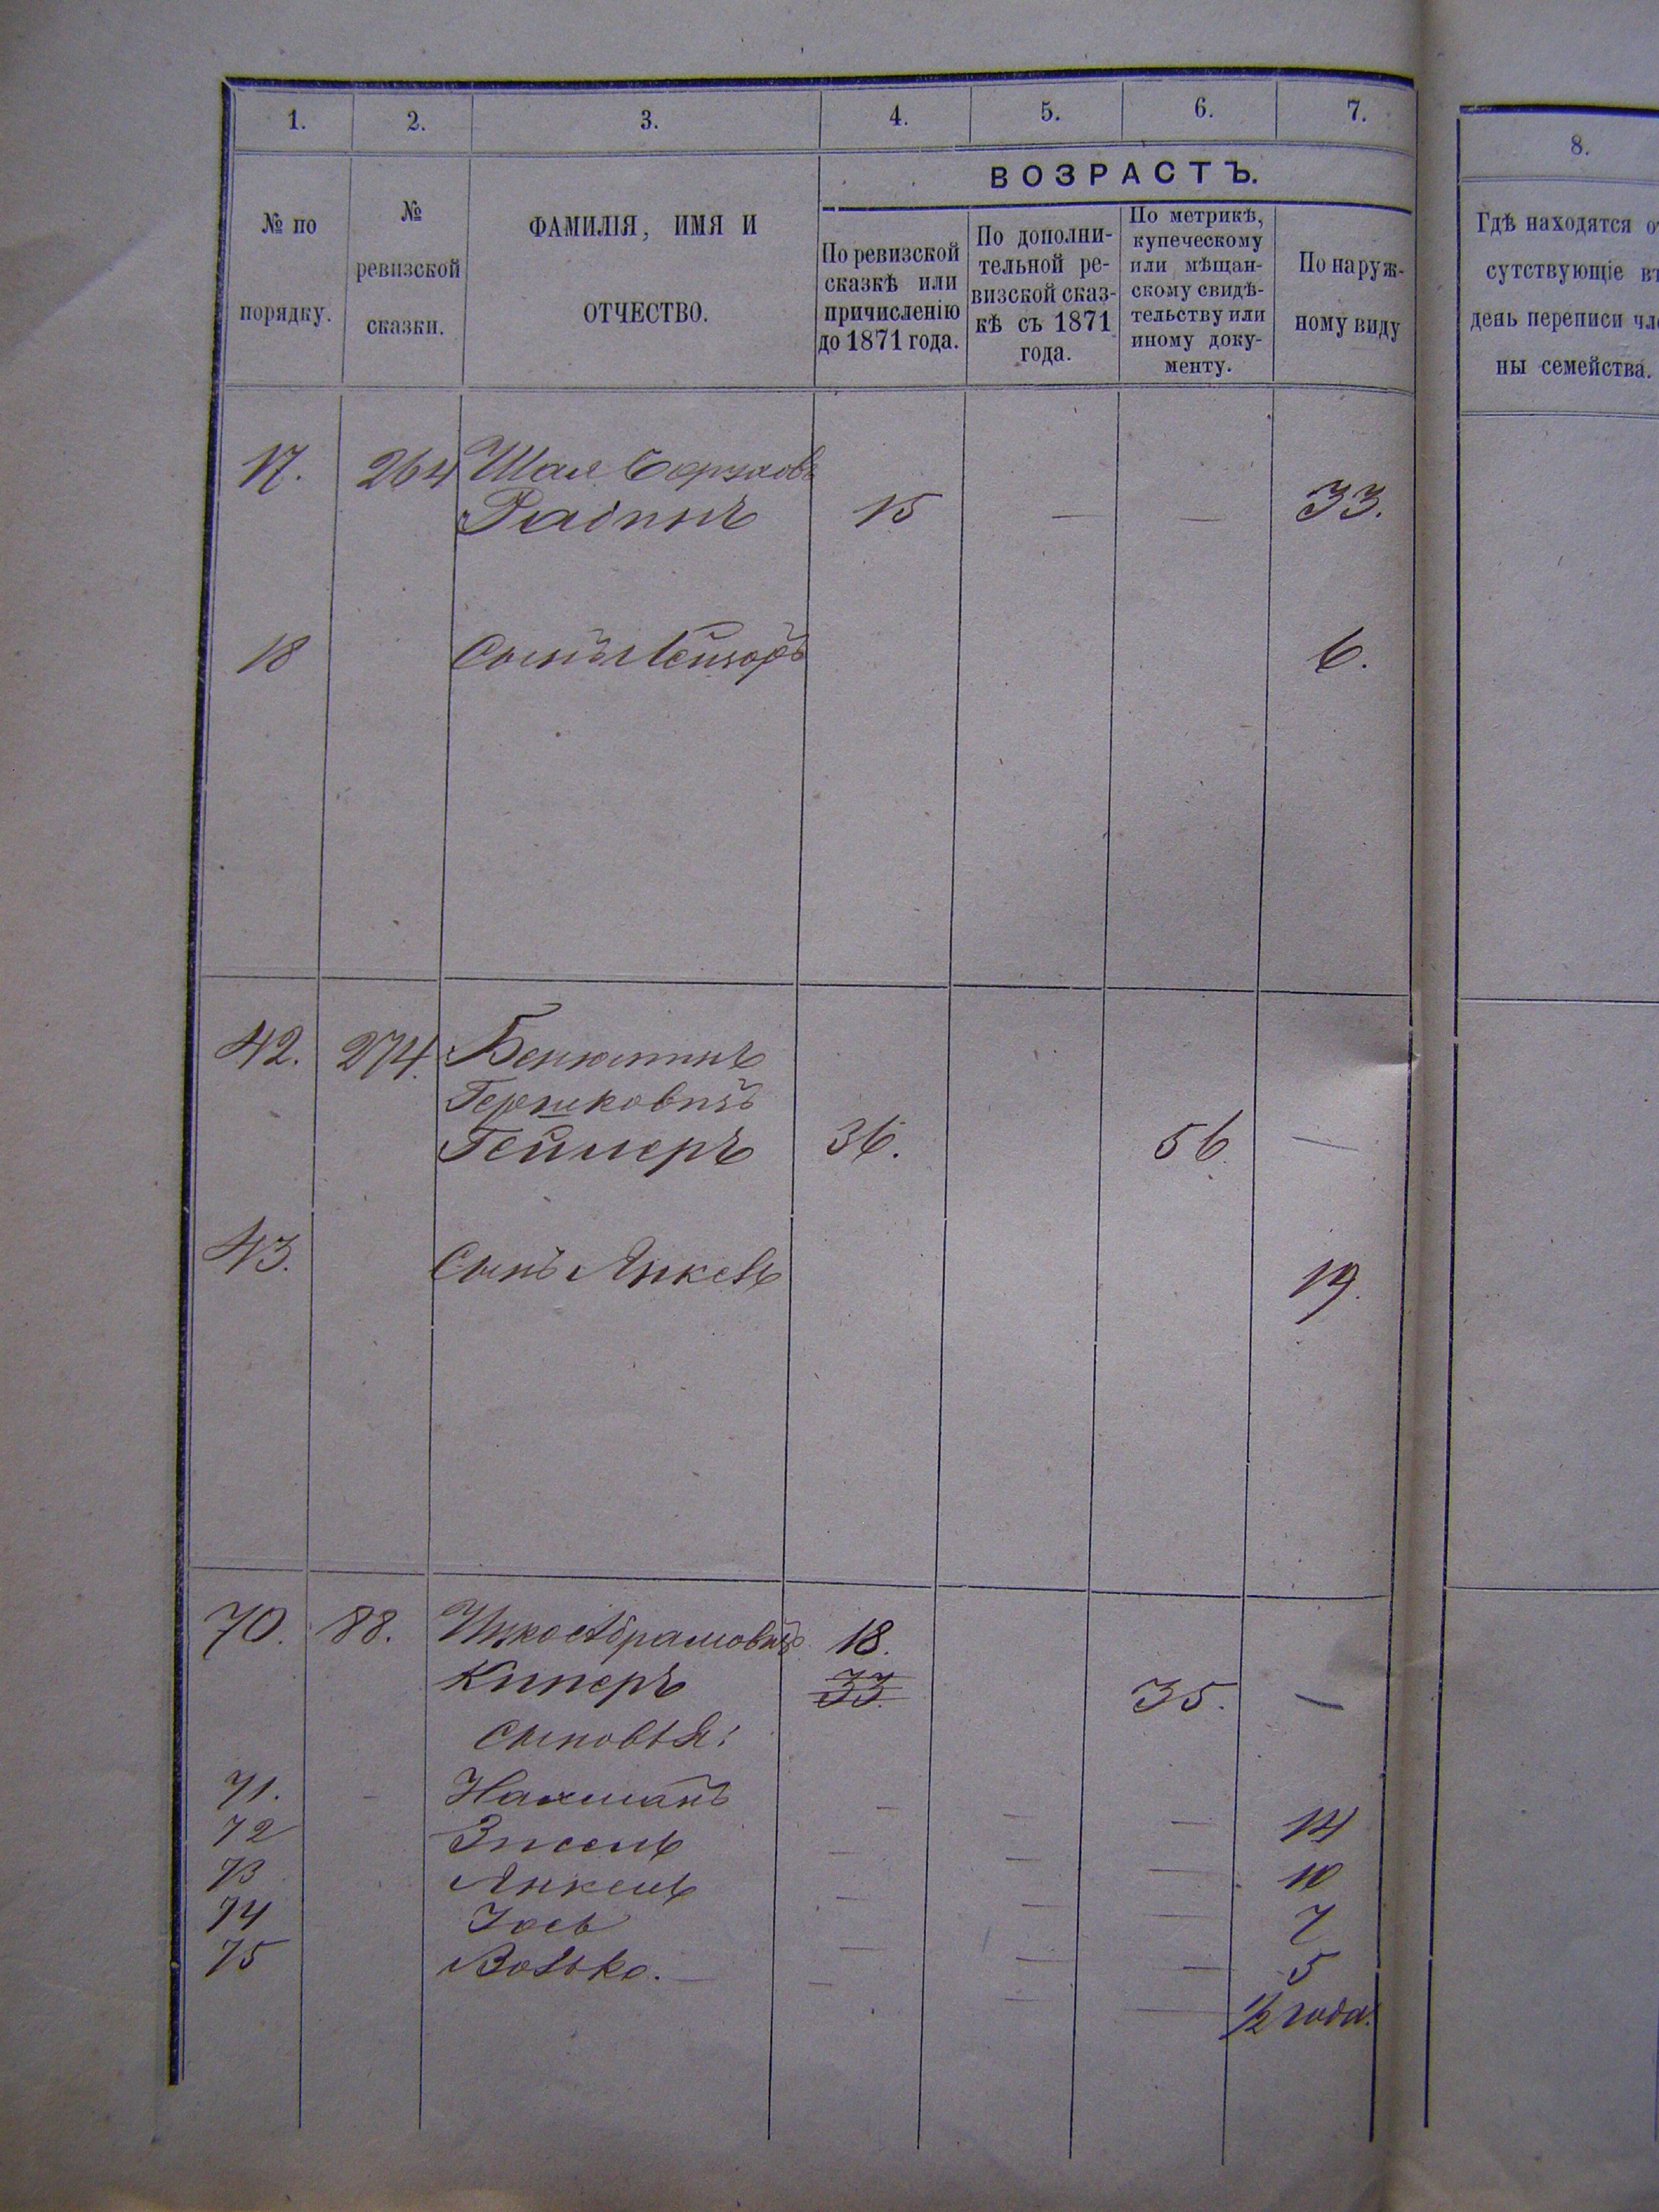 1. 2. 3. 4. 5. 6. 7.
8.
ВОЗРАСТЪ.
№ по
порядку.
№
ревизской
сказки.
ФАМИЛІЯ, ИМЯ И
ОТЧЕСТВО.
По ревизской
сказкѣ или
причисленію
до 1871 года.
По дополни-
тельной ре-
визской сказ-
кѣ съ 1871
года.
По метрикѣ,
купеческому
или мѣщан-
скому свидѣ-
тельству или
иному доку-
менту.
По наруж-
ному виду
Гдѣ находятся от
сутствующіе въ
день переписи чле
ны семейства.
17. 264 Шая
15 — — 33.
18 Сынъ Лейзоръ 6.
42. 274. Беніоминъ
Гершковичъ
Геймеръ 36. 56 —
43. Сынъ Янкель 19.
70. 88. Ицко Абрамовичъ 18.
Киперъ 33. 35. —
Сыновья:
71. Нахманъ — — — 14
72 Зисель — — — 10
73 Янкель — — — 7
74 Іось — — — 5
75 Волько. — — — — 1/2 года.